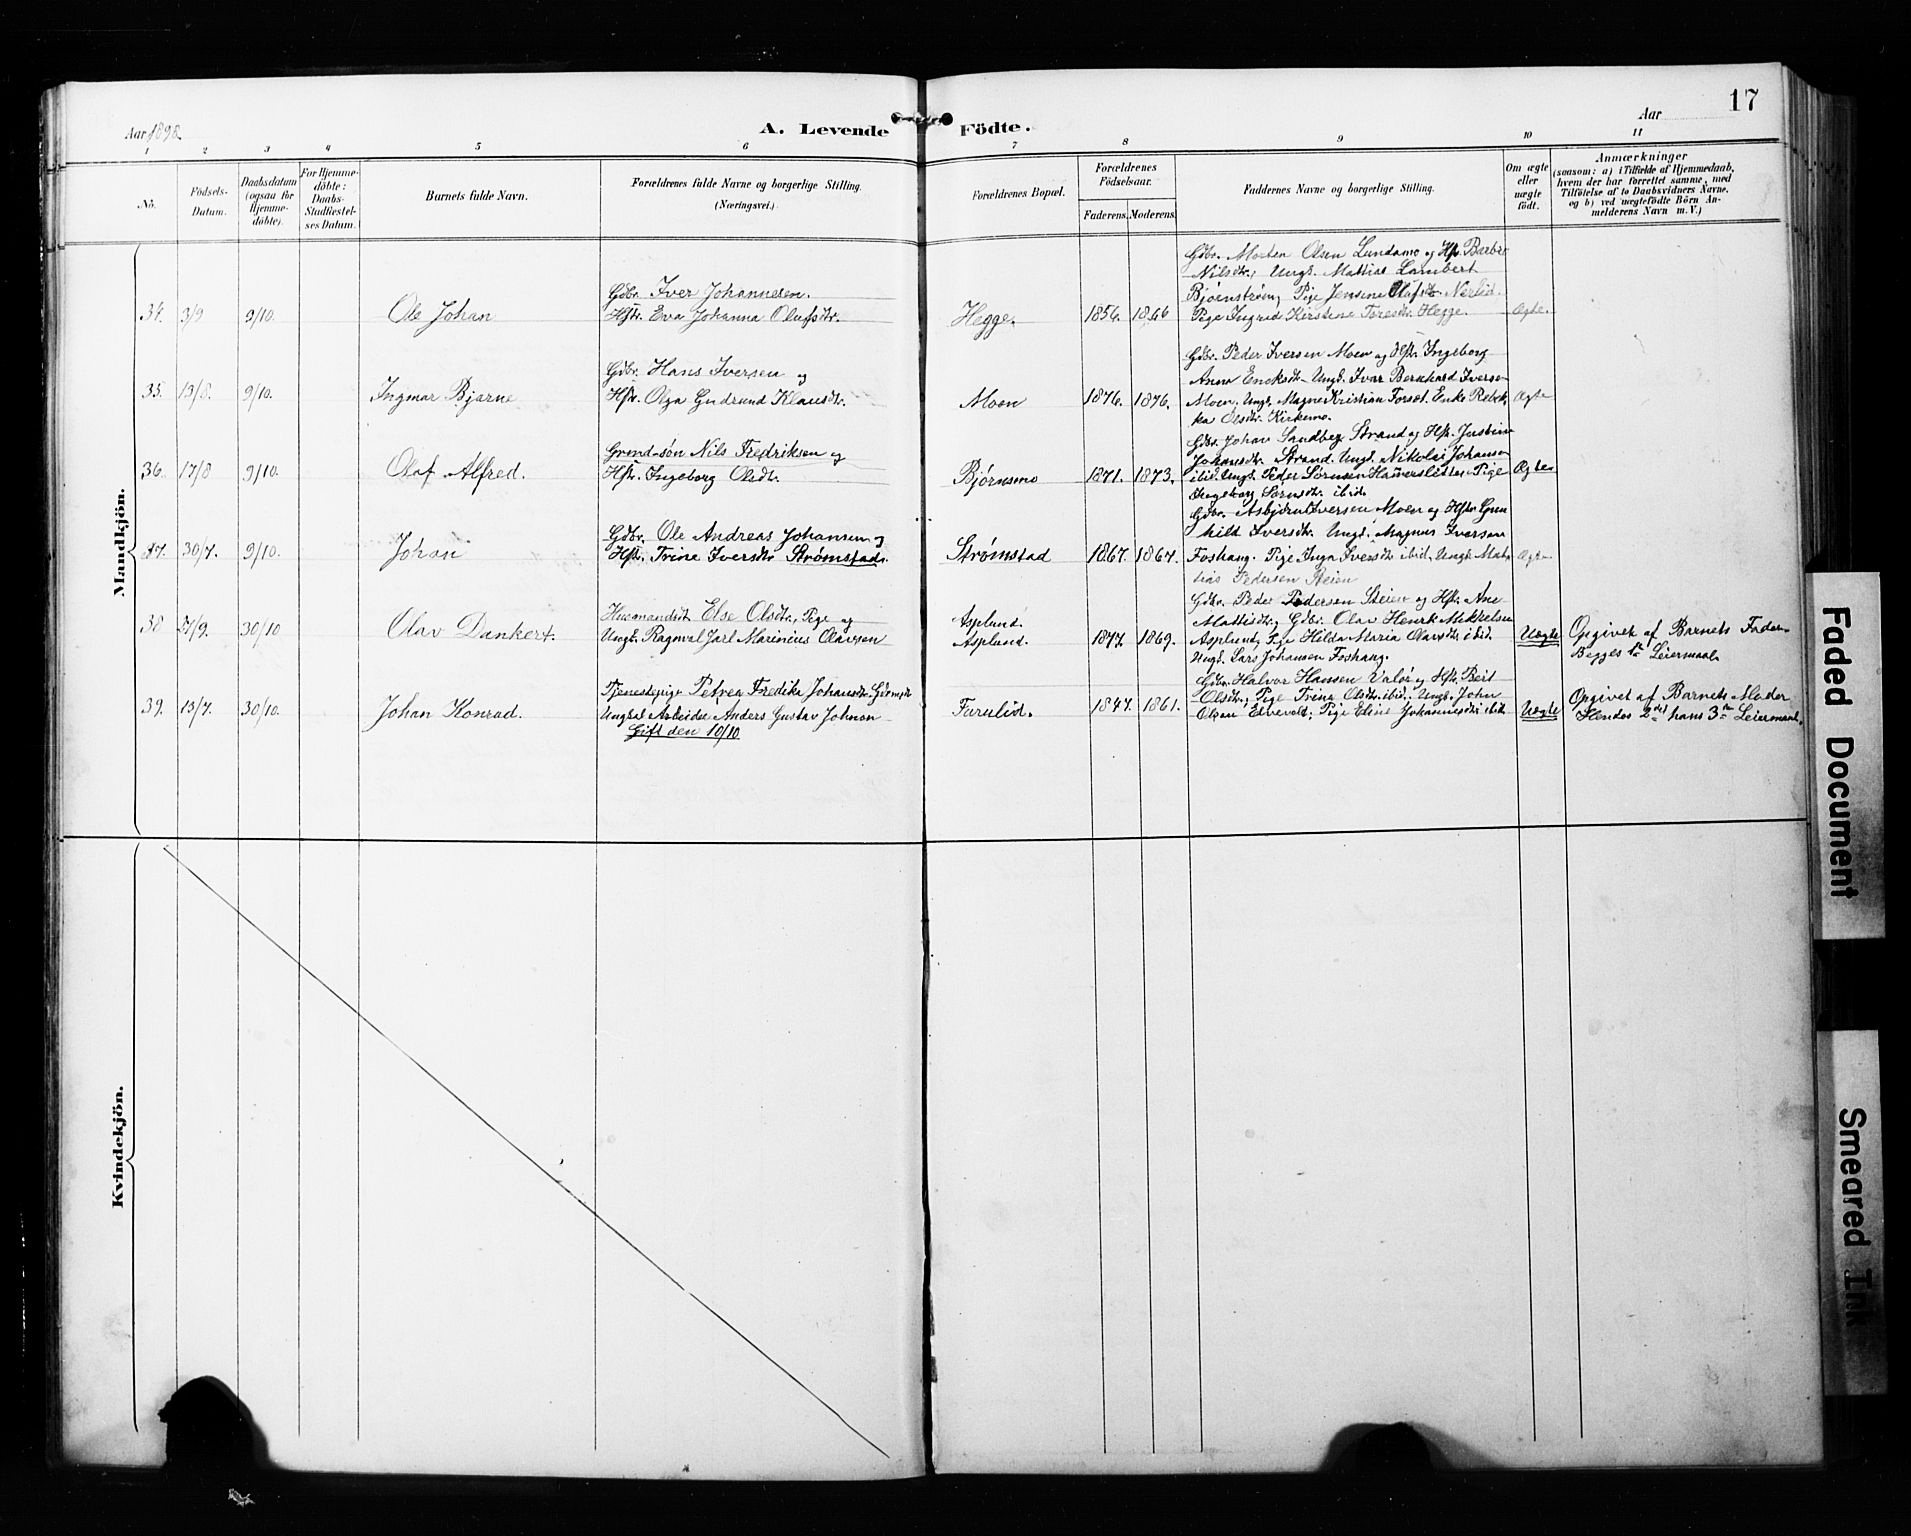 Aar 1898.
A. Levende Födte.
Aar
17
1 2 3 4 5 6 7 8 9 10 11
No.
Födsels-
Datum.
Daabsdatum
(ogsaa for
Hjemme-
döbte).
For Hjemme-
döbte:
Daabs-
Stadfæstel-
ses Datum.
Barnets fulde Navn.
Forældrenes fulde Navne og borgerlige Stilling.
(Næringsvei.)
Forældrenes Bopæl.
Forældrenes
Födselsaar.
Faderens. Moderens.
Faddernes Navne og borgerlige Stilling.
Om ægte
eller
uægte
födt.
Anmærkninger
(saasom: a) i Tilfælde af Hjemmedaab,
hvem der har forrettet samme, med
Tilföielse af to Daabsvidners Navne.
og b) ved uægtefödte Börn An-
melderens Navn m. V.)
Mandkjön.
34. 3/9 9/10. Ole Johan
Gdbr. Iver Johannesen.
Hstr. Eva Johanna Olufsdtr.
Hegge. 1856. 1866
Gdbr. Morten Olsen Lundamo og Hstr. Barbro
Nilsdtr, Ungk. Mattias Lambert
Bjørnstrøm, Pige Jensine Olafsdtr Nerlid
Pige Ingrid Kirstine Toresdtr. Hegge.
Ægte.
35. 13/8. 9/10. Ingmar Bjarne
Gdbr. Hans Iversen og
Hstr. Olga Gudrund Klausdtr.
Moen 1876. 1876.
Gdbr. Peder Iversen Moen og Hstr. Ingeborg
Anna Ericksdtr. Ungk. Ivar Bernhard Iversen
Moen, Ungk. Magne Kristian Forset. Enke Rebek-
ka Olsdtr. Kirkemo.
Ægte
36. 17/8 9/10. Olaf Alfred.
Grmd-søn Nils Fredriksen og
Hstr. Ingeborg Olsdtr.
Bjørnsmo 1871. 1873.
Gdbr. Johan Sandberg Strand og Hstr. Justine
Johansdtr. Strand. Ungk. Nikolai Johansen
ibid. Ungk. Peder Sørensen Haverslette Pige
Ingeborg Sørnsdtr. ibid.
Ægte
37. 30/7. 9/10. Johan
Gdbr. Ole Andreas Johansen og
Hstr. Trine Iversdtr Strømstad.
Strømstad 1867. 1867.
Gdbr. Asbjørn Iversen Moen og Hstr. Gun
hild Iversdtr. Ungk. Magnus Iversen
Foshaug. Pige Inga Iversdtr ibid. Ungk. Mat-
tias Pedersen Steien
Ægte
38 7/9. 30/10 Olav Dankert.
Husmandsdt Else Olsdtr., Pige og
Ungk. Ragnval Jarl Marinius Olaussen
Asplund.
Asplund. 1877. 1869.
Gdbr. Peder Pedersen Steien og Hstr. Ane
Mattisdtr, Gdbr. Olav Henrk Mikkelsen
Asplund, Pige Hilda Maria Olavsdtr ibid.
Ungk. Lars Johansen Foshaug.
Uægte
Opgivet af Barnets Fader
Begges 1ste Leiermaal
39. 13/7. 30/10. Johan Konrad.
Tjenestepige Petrea Fredrika Johansdtr.
Ungkal Arbeider Anders Gustav Johnson
Gift den 10/10
Furulid. 1847. 1861.
Gdbr. Halvor Hansen Valør og Hstr. Berit
Olsdtr, Pige Trine Olsdtr. ibid. Ungk. John
Olsen Elvevold, Pige Eline Johannesdtr ibid
Uægte
Opgivet af Barnets Moder
Hendes 2det hans 3die Leiermaal.
Kvindekjön.
Faded Document
Smeared Ink